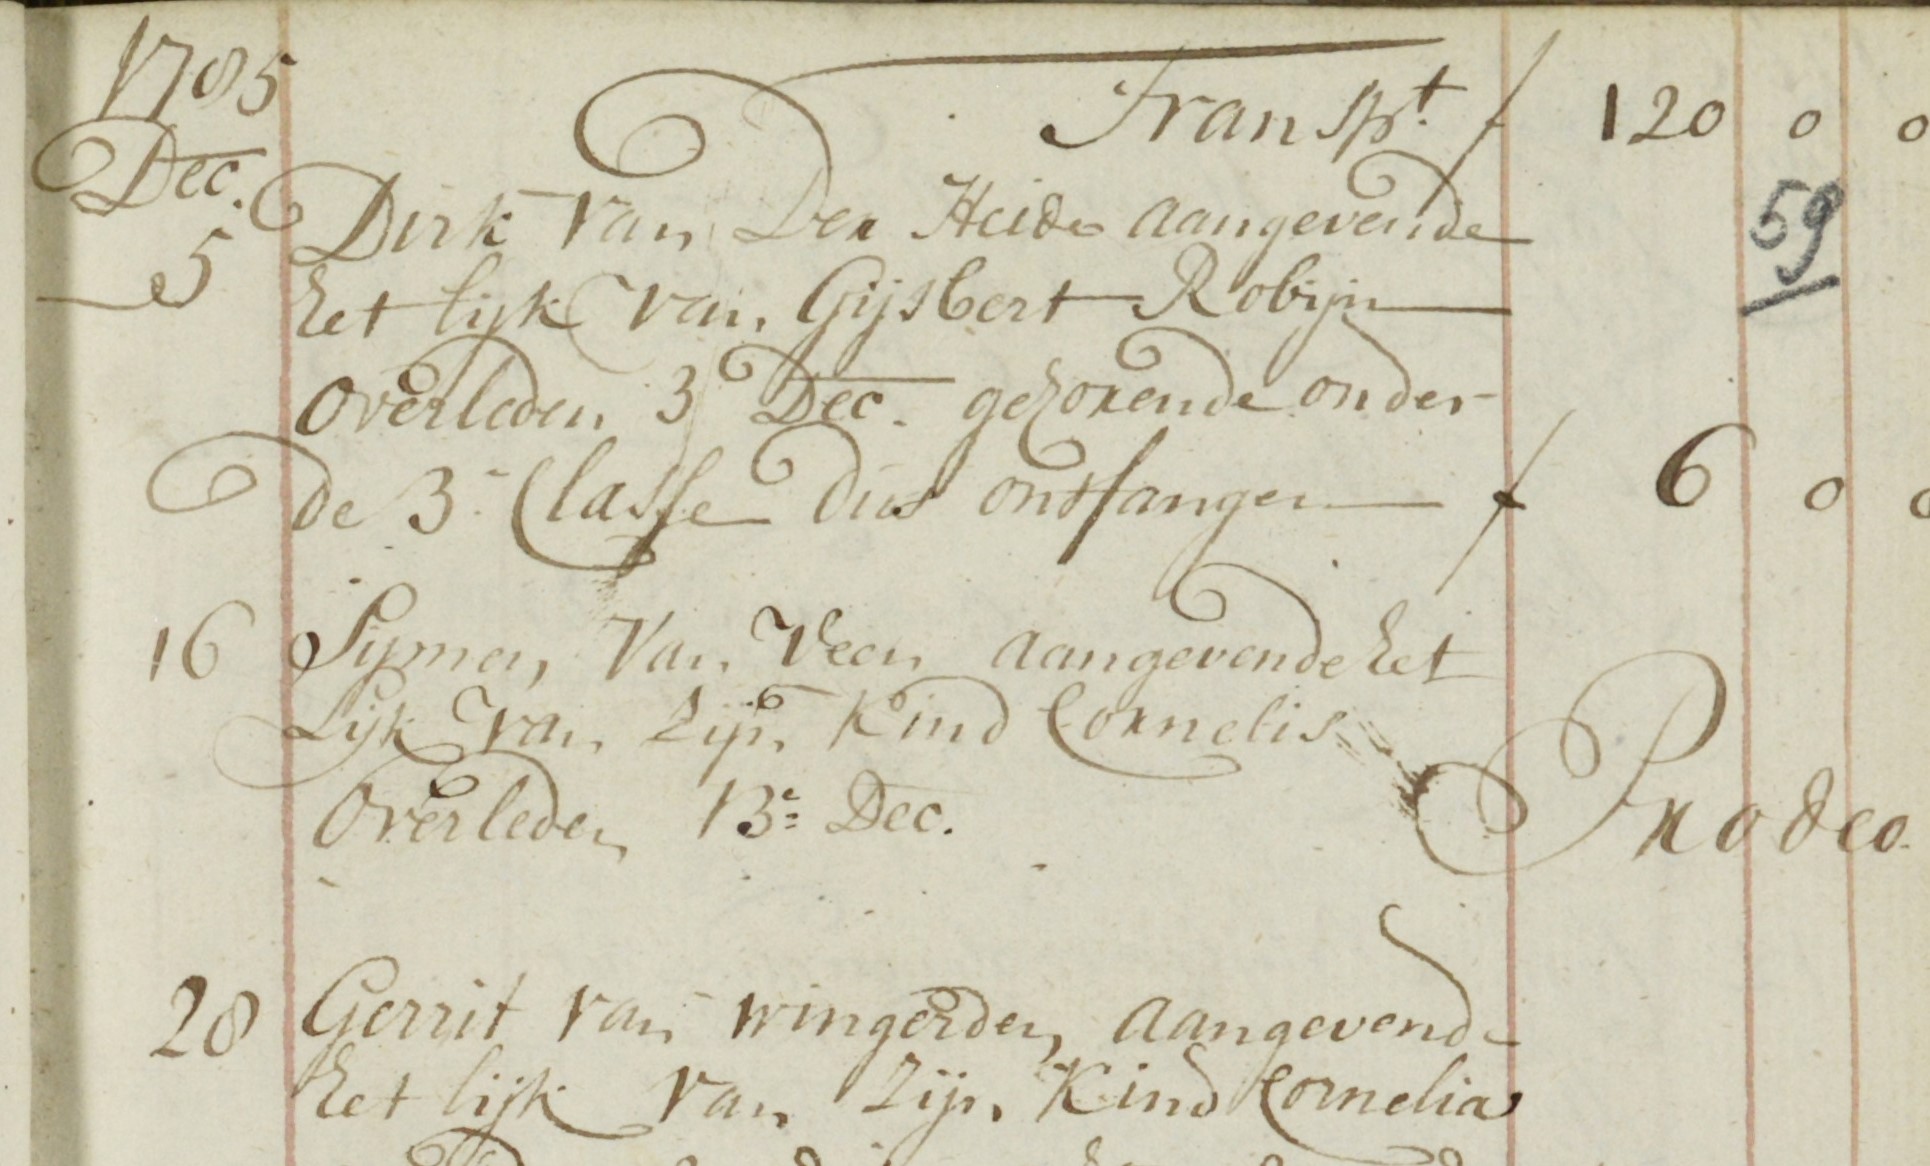 1785 Transpt. f 120 0 0
Dec.
59
5 Dirk van Der Heide aangevende
het lijk van Gijsbert Robijn
overleden 3 Dec. gehorende onder
de 3e Classe dus ontfangen f 6 0 0
16 Symen van Veen aangevende het
Lijk van Zijn Kind Cornelis
overleden 13e Dec. Prodeo.
28 Gerrit van Wingerden aangevende
het lijk van Zijn Kind Cornelia